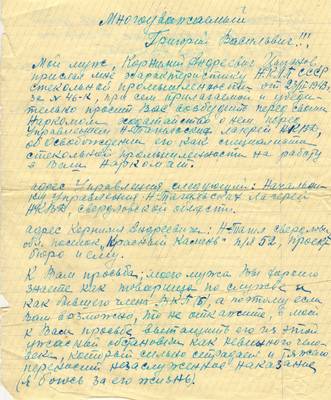 Многоуважаемый
Григорий Васильевич!!!
Мой муж, Корнилий Андреевич
прислал мне характеристику Н.К.Л.П. СССР
стекольной промышленности от
за № 46-К, при сем прилагаемой и
тельно просит Вас возбудить перед своим
Наркомом ходатайство о нем, перед
Управлением Н-Тагильских лагерей НКВД,
об освобождении его как специалиста
стекольной промышленности на работу
в Ваш Наркомат.
адрес Управления следующий: Начальни-
ку Управления Н-Тагильских лагерей
НКВД, Свердловской области.
адрес Корнилия Андреевича: Н-Тагил Свердлов.
обл. поселок "Красный камень" п/я 52,
бюро и ему.
К Вам просьба; моего мужа Вы хорошо
знаете как товарища по службе и
как бывшего член ВКП(б), а поэтому если
Вам возможно, то не откажите, в моей
к Вам просьбе вытащить его из этой
ужасной обстановки как невинного чело-
века, который сильно страдает и тяжело
переносит незаслуженное наказание
(я боюсь за его жизнь)